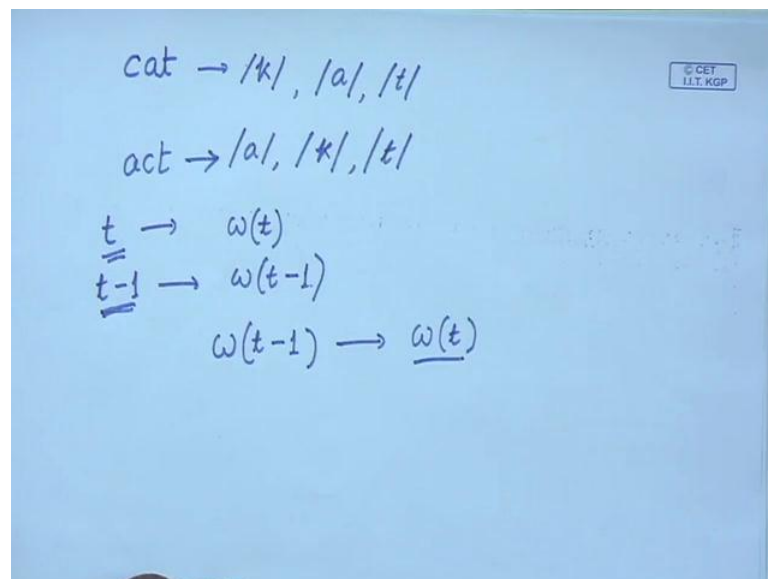 cat → /k/, /a/, /t/
© CET
I.I.T. KGP
act → /a/, /k/, /t/
t → ω(t)
t-1 → ω(t-1)
ω(t-1) → ω(t)